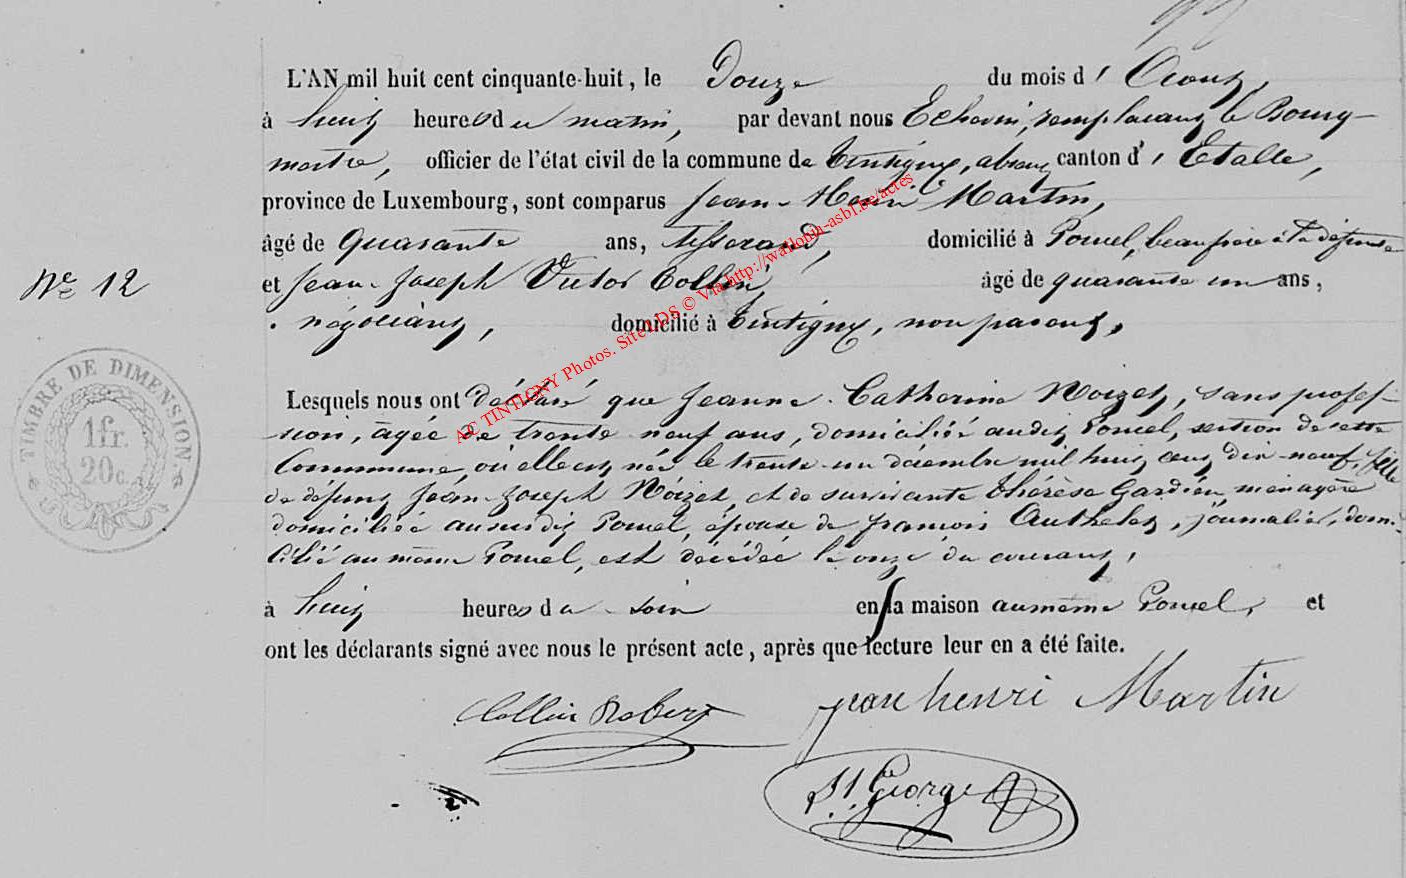 L'AN mil huit cent cinquante-huit, le Douze du mois d' Août,
à huit heures du matin, par devant nous Echevin, remplaçant le Bourg-
mestre, officier de l'état civil de la commune de Tintigny, absent canton d' Etalle,
province de Luxembourg, sont comparus Jean-Henri Martin,
âgé de quarante ans, tisserand, domicilié à Poncel, beau frère à la défunte
et Jean-Joseph Victor Collin âgé de quarante un ans,
N° 12
négociant, domicilié à Tintigny, non parent,
AC TINTIGNY Photos. Site LDS © Via http://wallonia-asbl.be/actes
Lesquels nous ont déclaré que Jeanne-Catherine Noizet, sans profes-
sion, âgée de trente neuf ans, domiciliée audit Poncel, section de cette
Commune, où elle est née le trente-un décembre mil huit cent dix-neuf, fille
de défunt Jean-Joseph Noizet, et de survivante Thérèse Gardien, ménagère
domiciliée aususdit Poncel, épouse de françois Authelet, journalier, domi-
cilié au même Poncel, est décédée le onze du courant,
TIMBRE DE DIMENSION.
1 fr.
20 c.
à huit heures du soir en la maison au même Poncel, et
ont les déclarants signé avec nous le présent acte, après que lecture leur en a été faite.
Collin Robert jean henri Martin
St. George